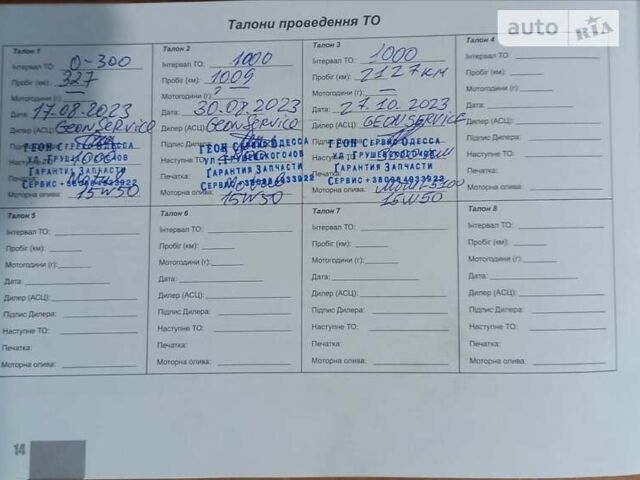 auto RIA
Талони проведення ТО
Талон 1
Інтервал ТО: 0-300
Пробіг (км): 327
Мотогодини (г): —
Дата: 17.08.2023
Дилер (АСЦ): GEONSERVICE
Підпис Дилера:
Наступне ТО: 1000
Печатка:
Моторна олива: Мотул
15W50
ГЕОН Сервис Одесса
ул. Грушевского 40в
Гарантия Запчасти
Сервис +380984933922
Талон 2
Інтервал ТО: 1000
Пробіг (км): 1009
Мотогодини (г):
Дата: 30.08.2023
Дилер (АСЦ): GEONSERVICE
Підпис
Наступне ТО:
Печатка:
Моторна олива:
15W50
ГЕОН Сервис Одесса
ул. Грушевского 40в
Гарантия Запчасти
Сервис +380984933922
Талон 3
Інтервал ТО: 1000
Пробіг (км): 2127 км
Мотогодини (г): —
Дата: 27.10.2023
Дилер (АСЦ): GEONSERVICE
Підпис Дилера:
Наступне ТО:
Печатка:
Моторна олива: 5100
15W50
ГЕОН Сервис Одесса
ул. Грушевского 40в
Гарантия Запчасти
Сервис +380984933922
Талон 4
Інтервал ТО:
Пробіг (км):
Мотогодини (г):
Дата:
Дилер (АСЦ):
Підпис Дилера:
Наступне ТО:
Печатка:
Моторна олива:
Талон 5
Інтервал ТО:
Пробіг (км):
Мотогодини (г):
Дата:
Дилер (АСЦ):
Підпис Дилера:
Наступне ТО:
Печатка:
Моторна олива:
Талон 6
Інтервал ТО:
Пробіг (км):
Мотогодини (г):
Дата:
Дилер (АСЦ):
Підпис Дилера:
Наступне ТО:
Печатка:
Моторна олива:
Талон 7
Інтервал ТО:
Пробіг (км):
Мотогодини (г):
Дата:
Дилер (АСЦ):
Підпис Дилера:
Наступне ТО:
Печатка:
Моторна олива:
Талон 8
Інтервал ТО:
Пробіг (км):
Мотогодини (г):
Дата:
Дилер (АСЦ):
Підпис Дилера:
Наступне ТО:
Печатка:
Моторна олива:
14